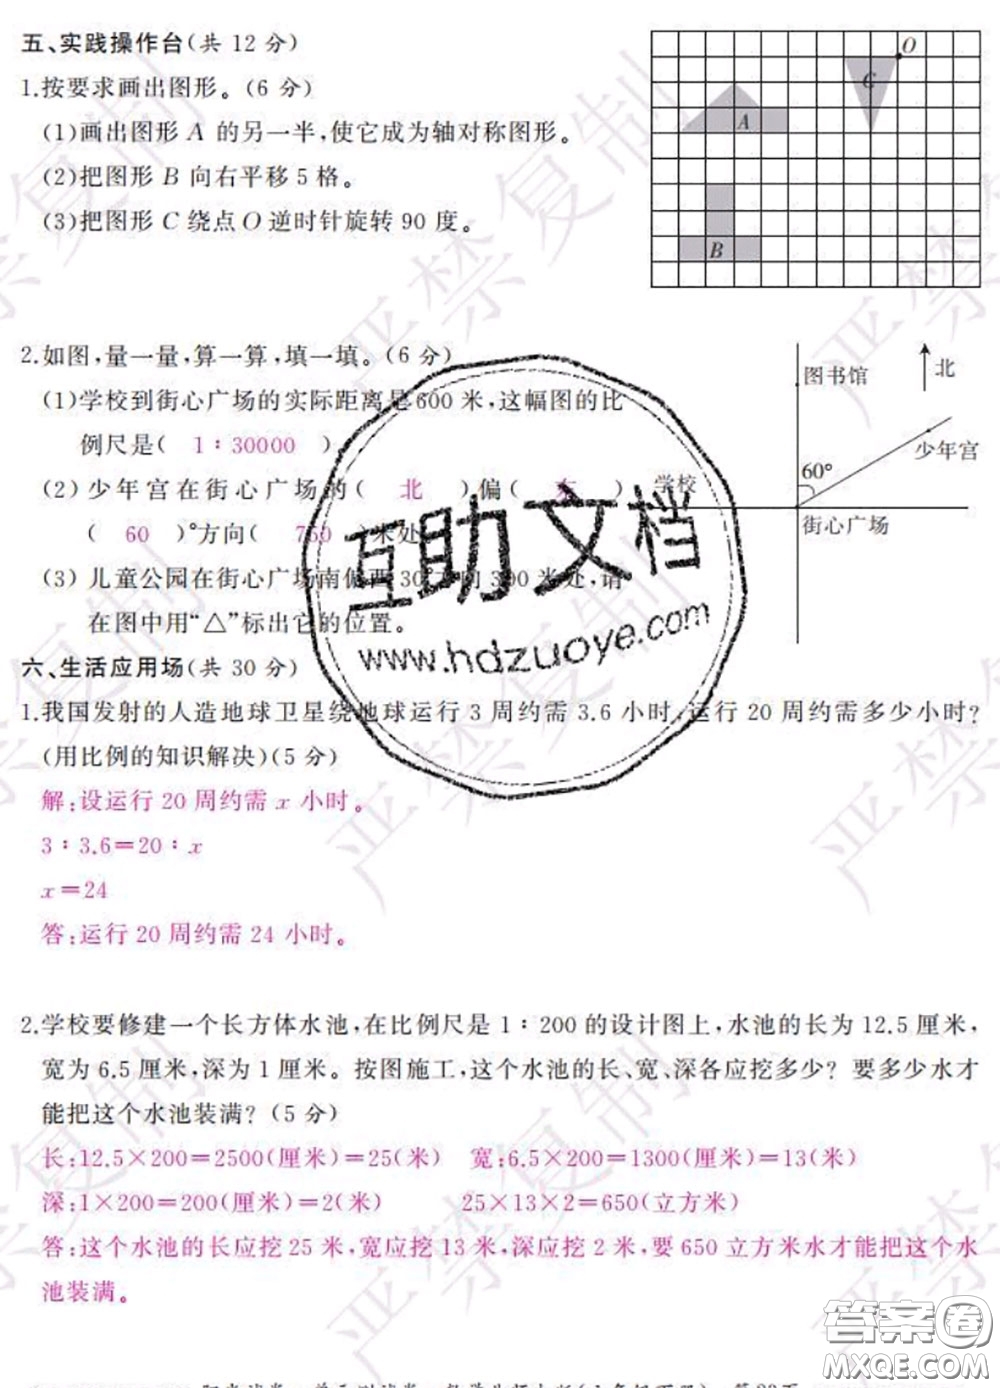 五、实践操作台(共 12 分)
1.按要求画出图形。(6 分)
(1)画出图形 A 的另一半,使它成为轴对称图形。
(2)把图形 B 向右平移 5 格。
(3)把图形 C 绕点 O 逆时针旋转 90 度。
O
C
A
B
2.如图,量一量,算一算,填一填。(6 分)
(1)学校到街心广场的实际距离是600 米,这幅图的比
例尺是( 1∶30000 )
(2) 少年宫在街心广场的( 北 )偏( 东 )
( 60 )°方向( 750 )米处
(3) 儿童公园在街心广场南偏西30°方向300米处,请
在图中用“△”标出它的位置。
图书馆
北
少年宫
60°
学校
街心广场
六、生活应用场(共 30 分)
1.我国发射的人造地球卫星绕地球运行 3 周约需 3.6 小时,运行 20 周约需多少小时?
(用比例的知识解决)(5 分)
解:设运行 20 周约需 x 小时。
3∶3.6=20∶x
x=24
答:运行 20 周约需 24 小时。
2.学校要修建一个长方体水池,在比例尺是 1∶200 的设计图上,水池的长为 12.5 厘米,
宽为 6.5 厘米,深为 1 厘米。按图施工,这个水池的长、宽、深各应挖多少? 要多少水才
能把这个水池装满?(5 分)
长:12.5×200=2500(厘米)=25(米) 宽:6.5×200=1300(厘米)=13(米)
深:1×200=200(厘米)=2(米) 25×13×2=650(立方米)
答:这个水池的长应挖 25 米,宽应挖 13 米,深应挖 2 米,要 650 立方米水才能把这个水
池装满。
互助文档
www.hdzuoye.com
严禁复制
严禁复制
严禁复制
严禁复制
严禁复制
严禁复制
答案圈
MXQE.COM